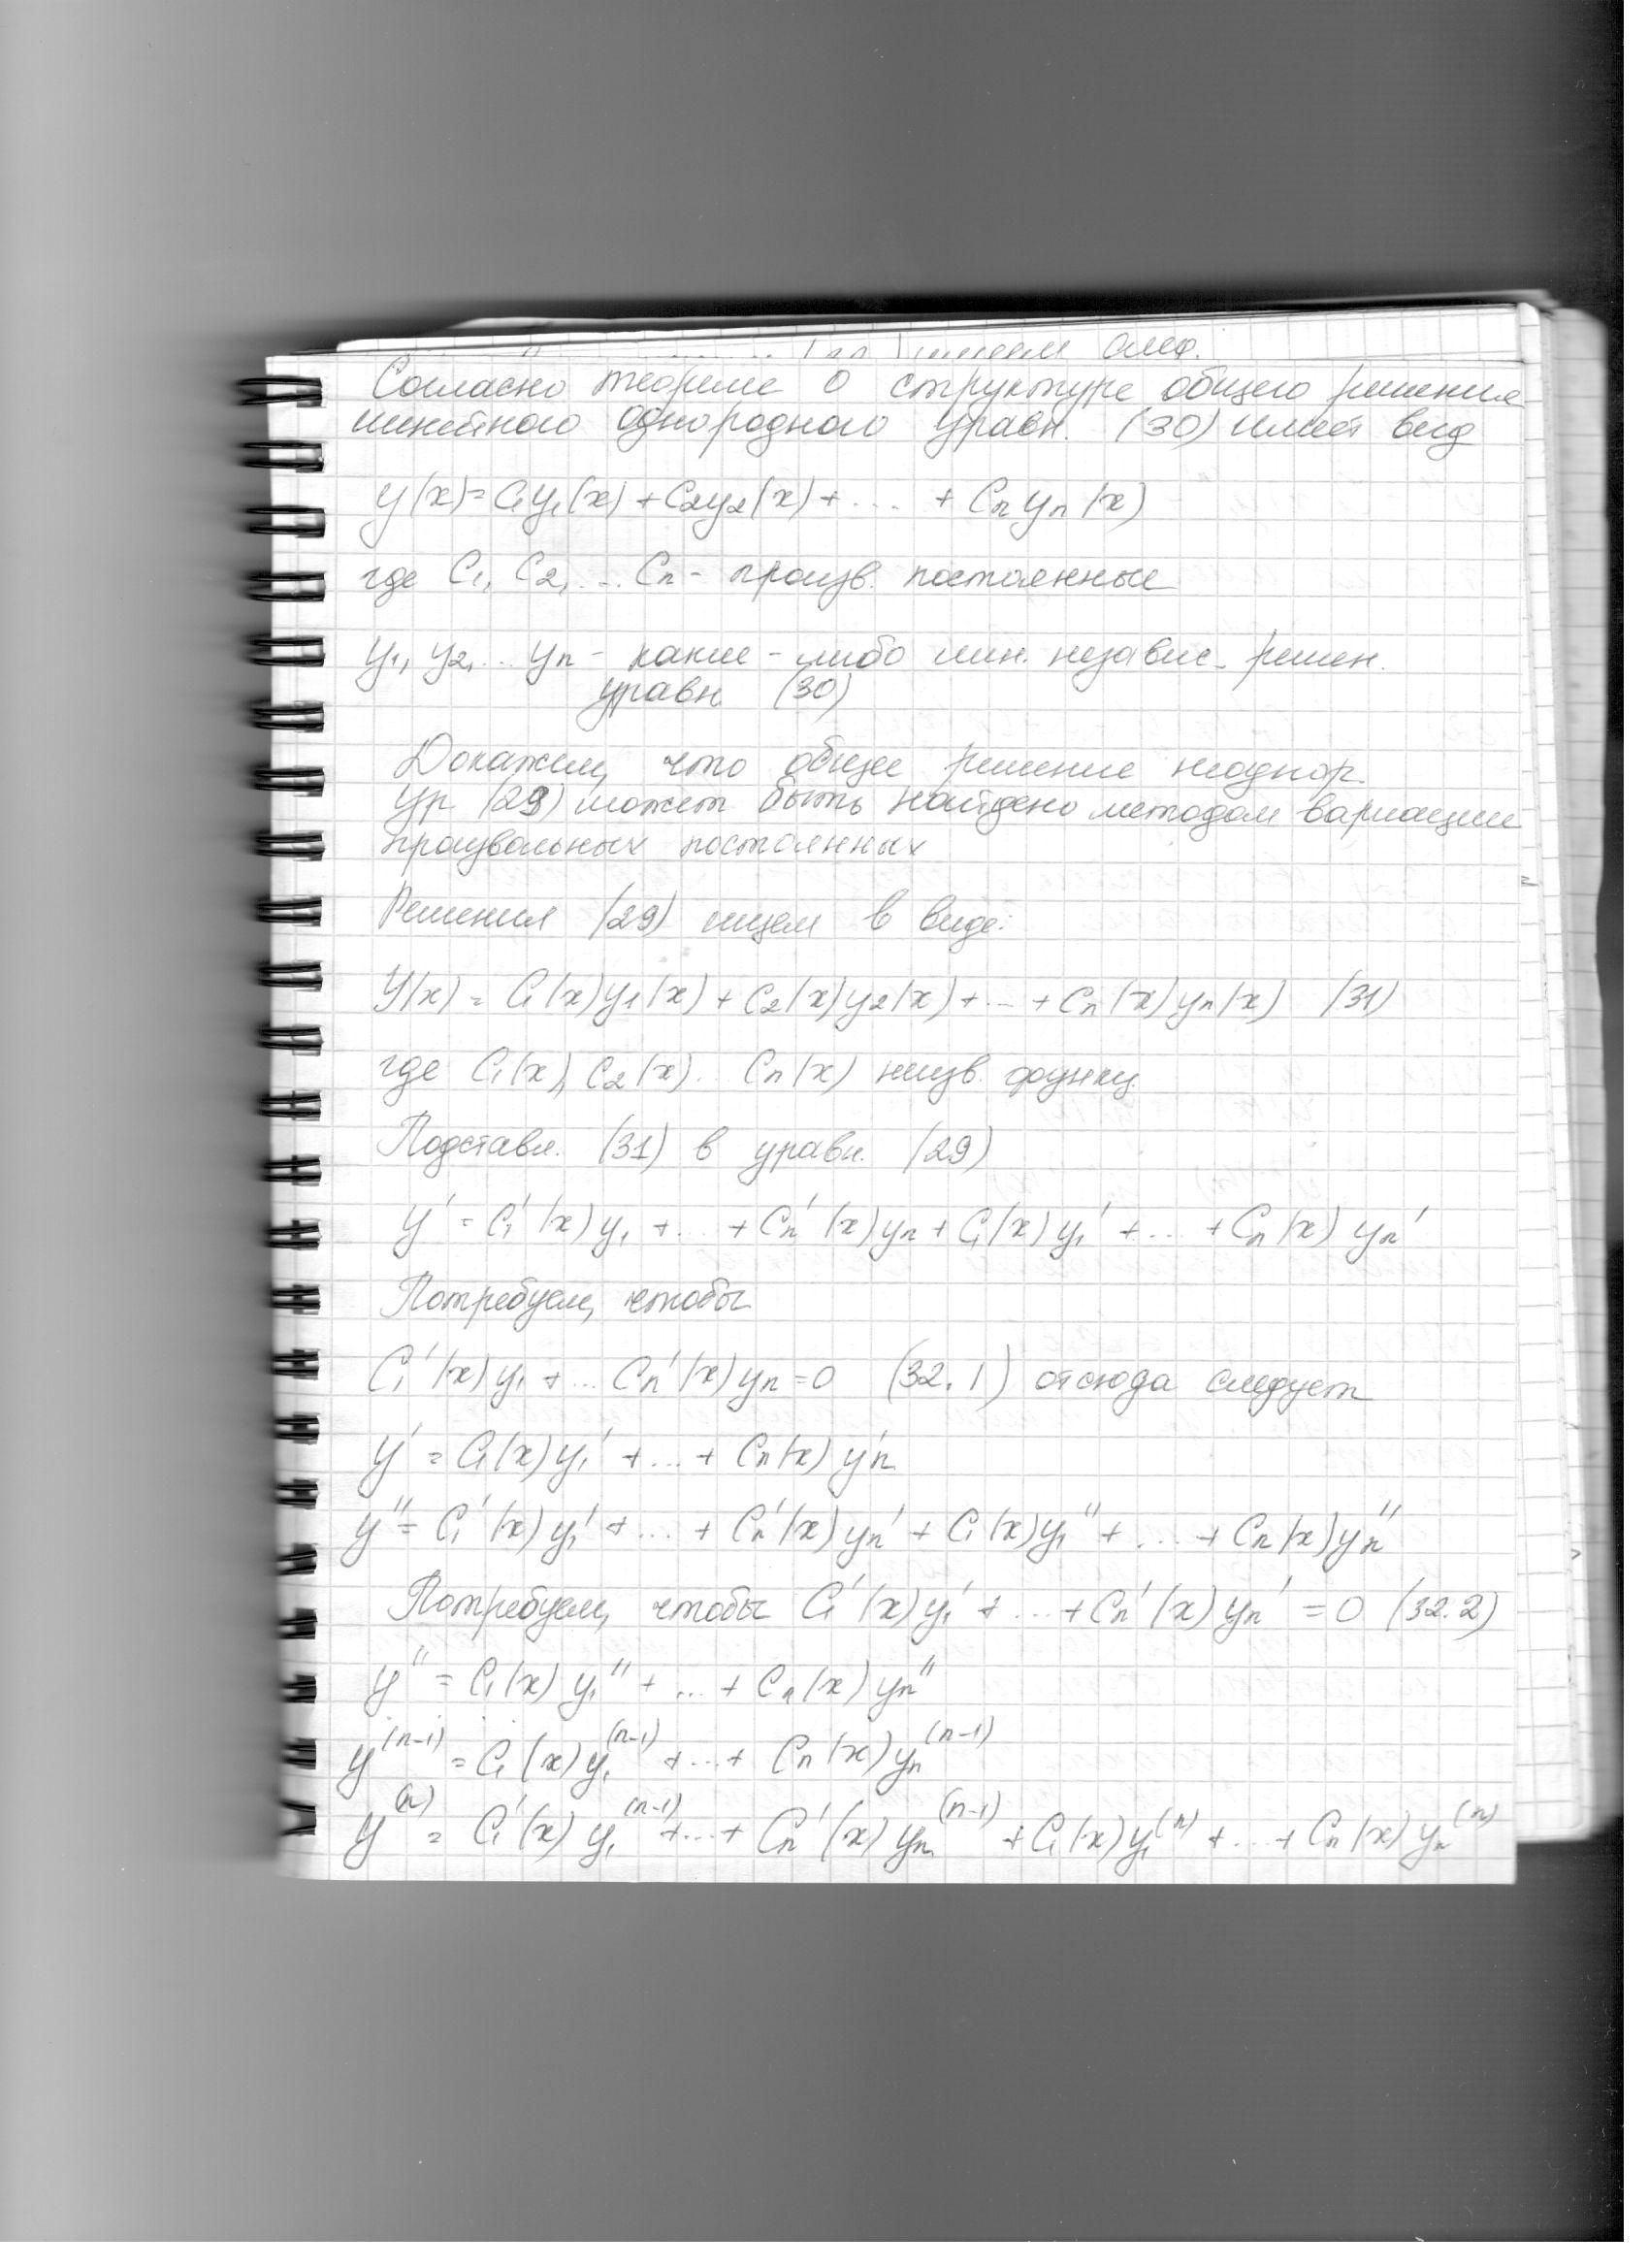 след.
Согласно теореме о структуре общего решения
линейного однородного уравн. (30) имеет вид
y(x)=C₁y₁(x)+C₂y₂(x)+... + Cₙyₙ(x)
где C₁, C₂, ... Cₙ - произв. постоянные
y₁, y₂, ... yₙ - какие-либо лин. независ. решен.
уравн (30)
Докажем, что общее решение неоднор.
ур. (29) может быть найдено методом вариации
произвольных постоянных
Решения (29) ищем в виде:
y(x) = C₁(x)y₁(x) + C₂(x)y₂(x)+...+Cₙ(x)yₙ(x) (31)
где C₁(x), C₂(x)... Cₙ(x) неизв. функц.
Подставл. (31) в уравн. (29)
y' = C₁'(x)y₁ +...+Cₙ'(x)yₙ+C₁(x)y₁' +...+Cₙ(x)yₙ'
Потребуем, чтобы
C₁'(x)y₁ +... Cₙ'(x)yₙ=0 (32.1) отсюда следует
y' = C₁(x)y₁' +...+ Cₙ(x)y'ₙ
y''= C₁'(x)y₁' +...+ Cₙ'(x)yₙ' + C₁(x)y₁'' + ... + Cₙ(x)yₙ''
Потребуем, чтобы C₁'(x)y₁' + ...+Cₙ'(x)yₙ' = 0 (32.2)
y'' = C₁(x)y₁'' + ...+ Cₙ(x)yₙ''
y⁽ⁿ⁻¹⁾ = C₁(x)y₁⁽ⁿ⁻¹⁾ +...+ Cₙ(x)yₙ⁽ⁿ⁻¹⁾
y⁽ⁿ⁾ = C₁'(x)y₁⁽ⁿ⁻¹⁾+...+ Cₙ'(x)yₙ⁽ⁿ⁻¹⁾ +C₁(x)y₁⁽ⁿ⁾ +...+ Cₙ(x)yₙ⁽ⁿ⁾